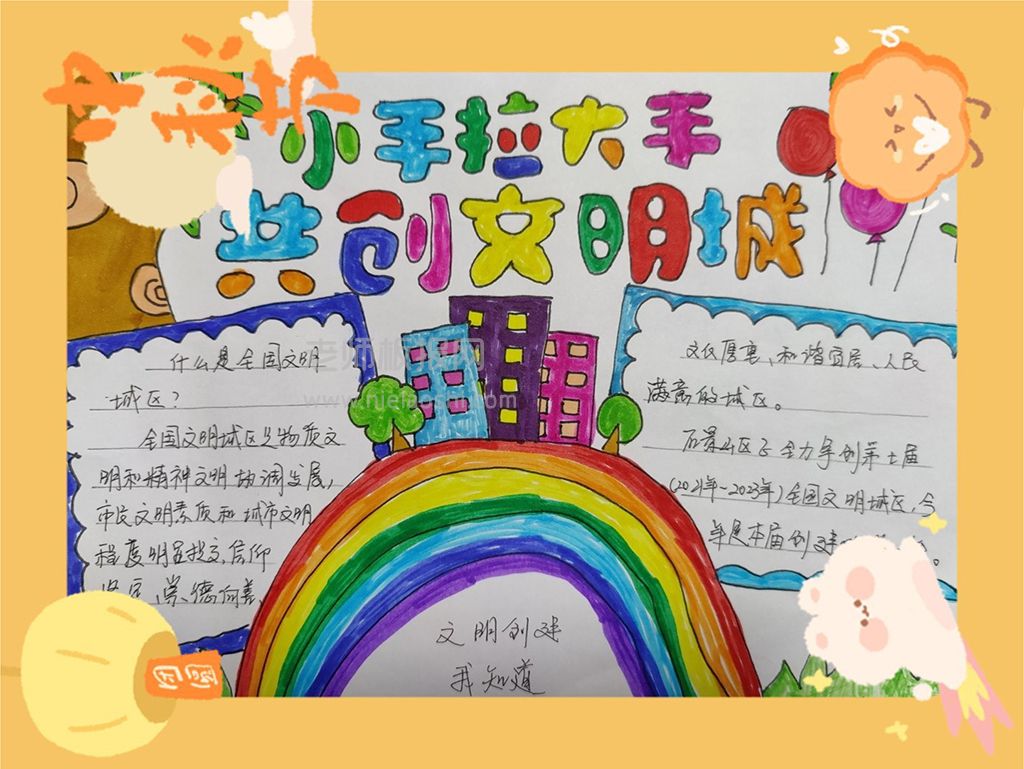 中秋节
小手拉大手
共创文明城
什么是全国文明
城区?
全国文明城区是物质文
明和精神文明协调发展,
市民文明素质和城市文明
程度明显提高,信仰
坚定、崇德向善、
文化厚重、和谐宜居、人民
满意的城区。
石景山区正全力争创第七届
(2021年-2023年)全国文明城区,今
年是本届创建
文明创建
我知道
老师板报网
www.hielaoshi.com
团圆